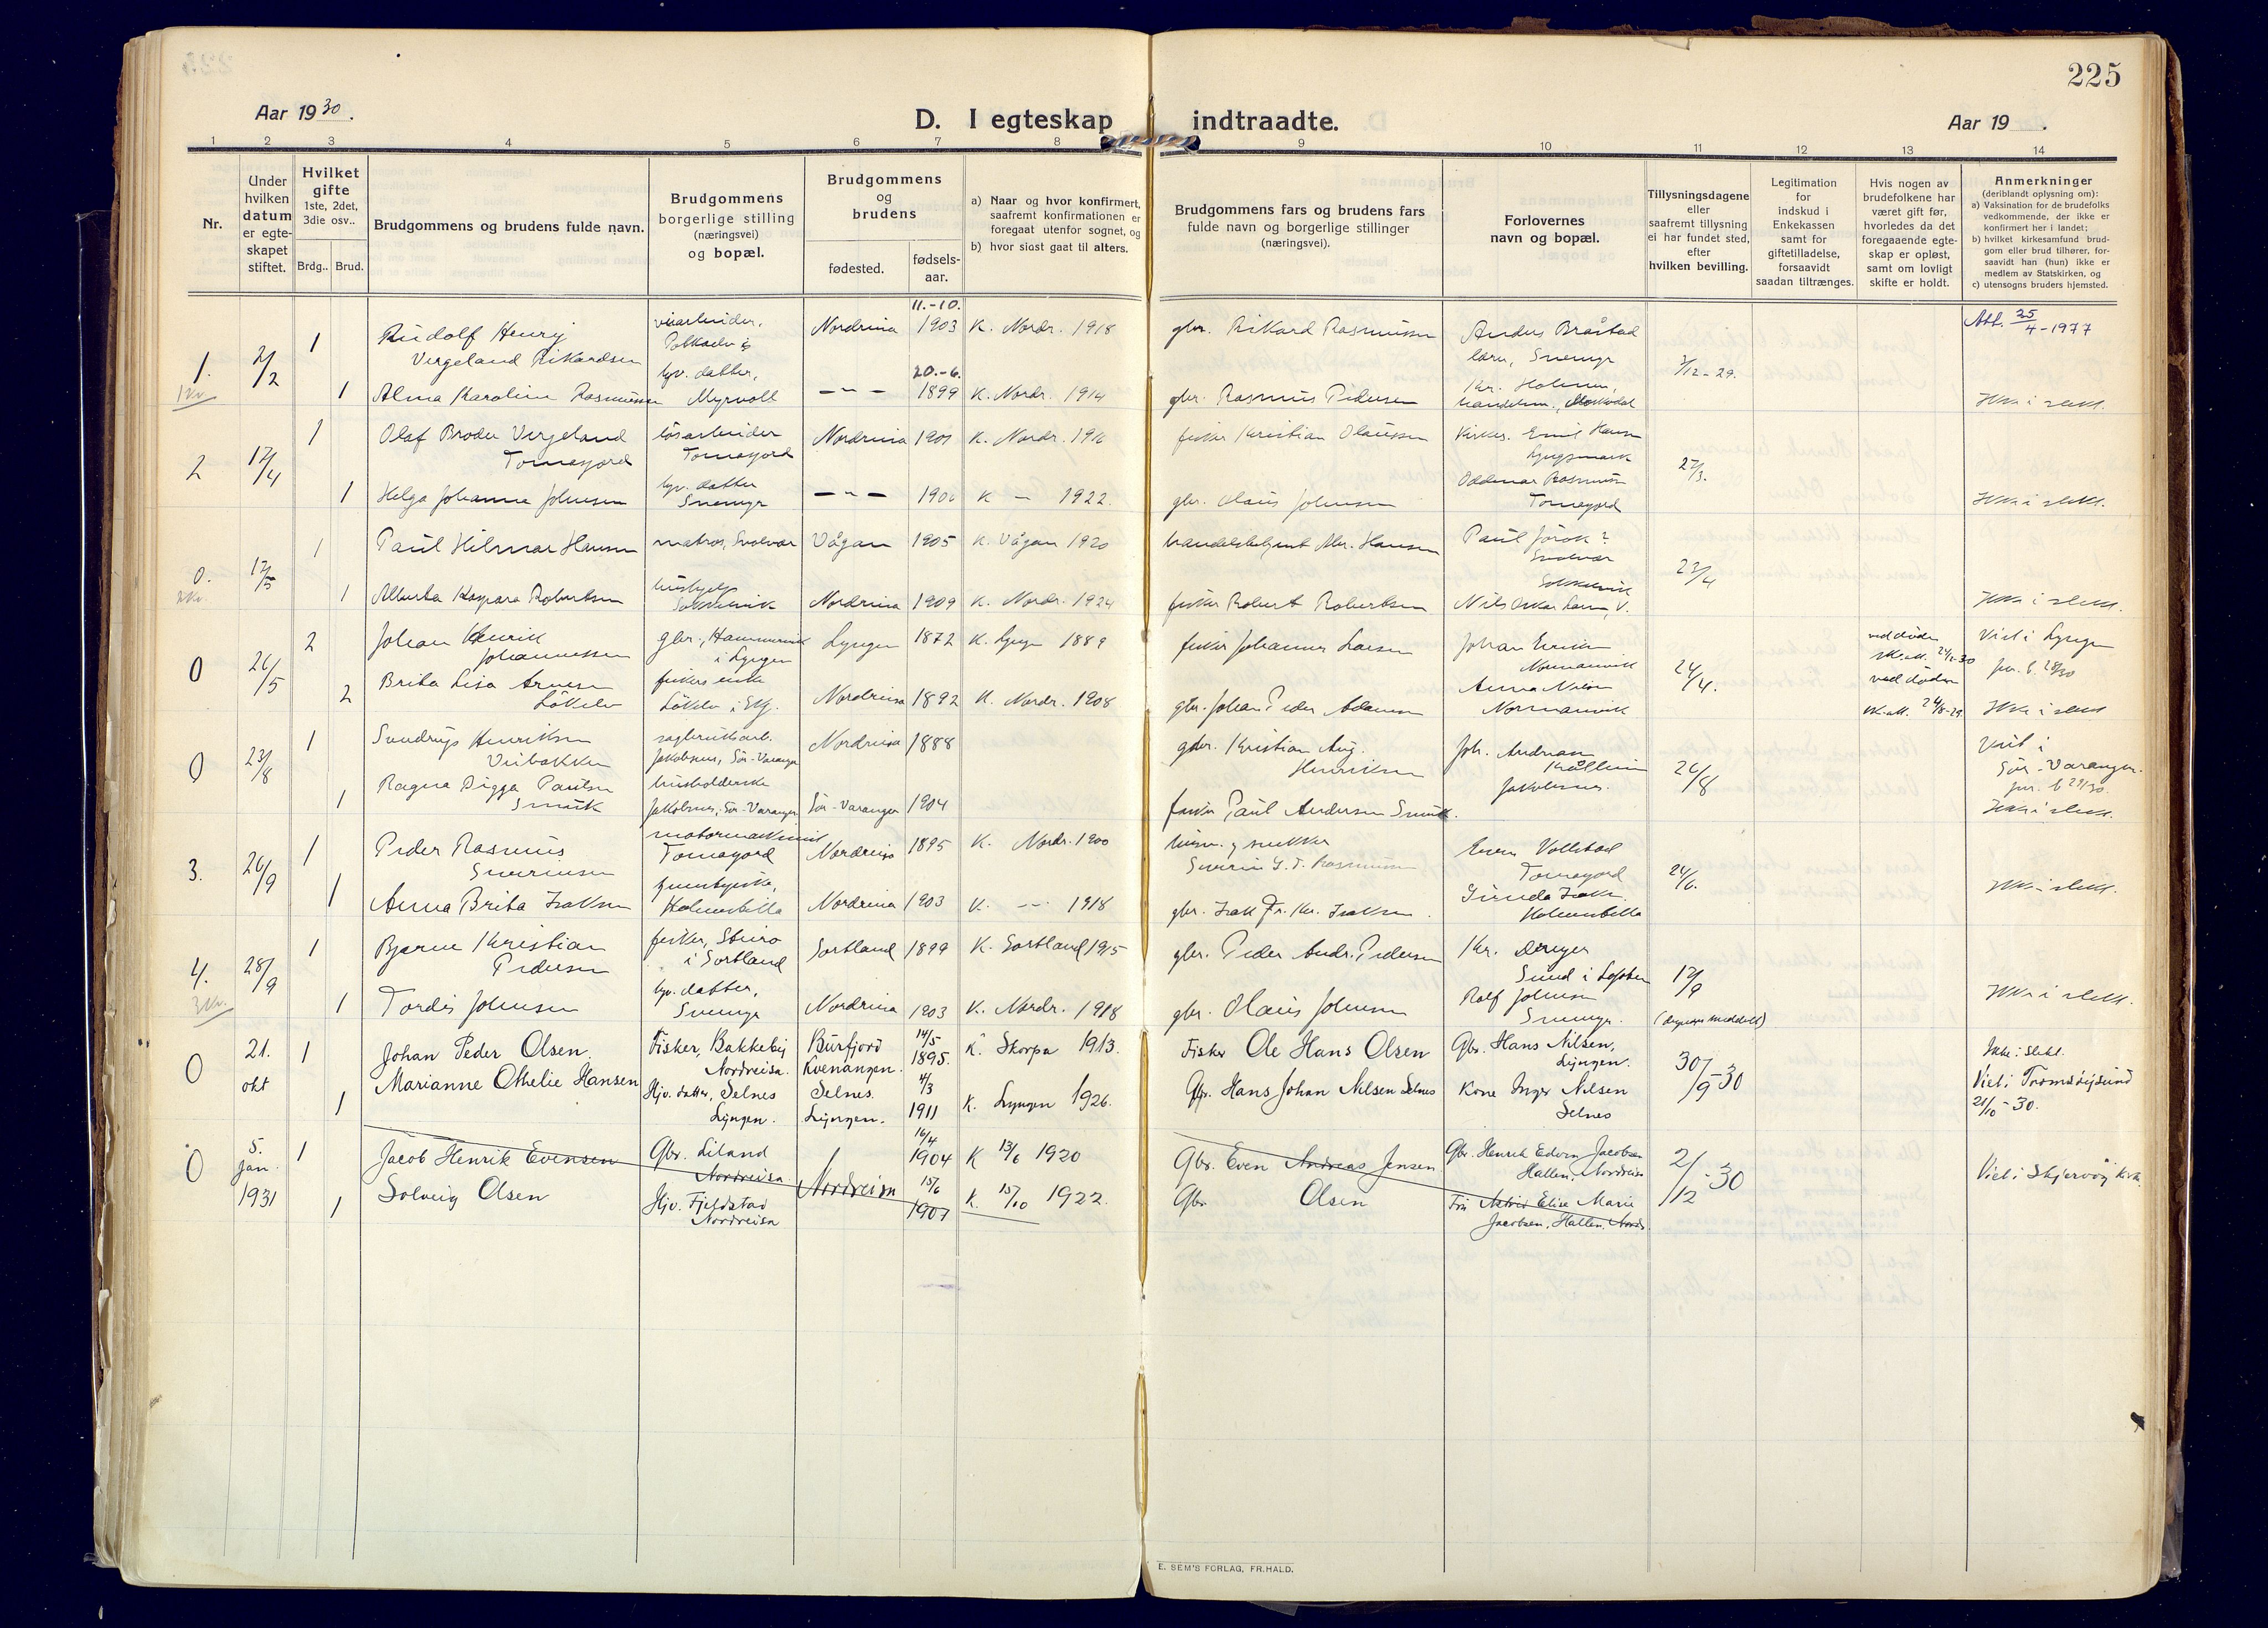 225
Aar 1930.
D. I egteskap indtraadte.
Aar 19 .
1 2 3 4 5 6 7 8 9 10 11 12 13 14
Nr.
Under
hvilken
datum
er egte-
skapet
stiftet.
Hvilket
gifte
1ste, 2det,
3die osv..
Brdg.. Brud.
Brudgommens og brudens fulde navn.
Brudgommens
borgerlige stilling
(næringsvei)
og bopæl.
Brudgommens
og
brudens
fødested.
fødsels-
aar.
a) Naar og hvor konfirmert,
saafremt konfirmationen er
foregaat utenfor sognet, og
b) hvor sidst gaat til alters.
Brudgommens fars og brudens fars
fulde navn og borgerlige stillinger
(næringsvei).
Forlovernes
navn og bopæl.
Tillysningsdagene
eller
saafremt tillysning
ei har fundet sted,
efter
hvilken bevilling.
Legitimation
for
indskud i
Enkekassen
samt for
giftetilladelse,
forsaavidt
saadan tiltrænges.
Hvis nogen av
brudefolkene har
været gift før,
hvorledes da det
foregaaende egte-
skap er opløst,
samt om lovligt
skifte er holdt.
Anmerkninger
(deriblandt oplysning om):
a) Vaksination for de brudefolks
vedkommende, der ikke er
konfirmert her i landet;
b) hvilket kirkesamfund brud-
gom eller brud tilhører, for-
saavidt han (hun) ikke er
medlem av Statskirken, og
c) utensogns bruders hjemsted.
1. 2/2 1 Rudolf Henry
Vergeland Rikardsen
Nordreisa 11.-10. 1903 K. Nordr. 1918
gbr. Rikard Rasmussen
Anders Bråstad
lærer, Snemyr
3/12-29.
Att. 25/4-1977
1 Alma Karoline Rasmussen
hjv. datter,
Myrvoll
— " — 20.-6. 1899 K. Nordr. 1914
gbr. Rasmus Pedersen
Kr. Holmen,
Ikke i slekt.
2 17/4 1 Olaf Broder Vergeland
Tornesjord
løsarbeider
Nordreisa 1901 K. Nordr. 1916
fisker Kristian Olaussen
Kirkes. Emil Hansen
27/3.
1 Helga Johanna Johnsen
hjv. datter
Snemyr
— " — 1906 K — 1922.
gbr. Olaus Johnsen
Oddmar Rasmussen
Ikke i slekt.
0. 17/5 1 Paul Hilmar Hansen
matros, Svolvær
Vågan 1905 K. Vågan 1920
handelsbetjent Alr. Hansen
Svolvær
23/4
1 Alberta Kaspara Robertsen
hushjelp
Nordreisa 1909 K. Nordr. 1924
fisker Robert Robertsen
Ikke i slekt.
0 26/5 2 Johan Henrik
Johannessen
gbr., Hammervik
i Lyngen
Lyngen 1872 K. Lyngen 1889
fisker Johannes Larsen
Johan Erik
Normannvik
24/4.
ved døden
Viet i Lyngen
2 Brita Lisa Arnesen
Løkelv
fiskers enke
Løkelv i Skj.
Nordreisa 1892 K. Nordr. 1908
gbr. Johan Peder Adamsen
Anna Nilsen
Normannvik
ved døden
Ikke i slekt
0 23/8 1 Sundrup Henriksen
sagbruksarb.
Jakobsnes, Sør-Varanger
Nordreisa 1888
gbr. Kristian Aug.
Henriksen
Joh. Andreas
26/8
Viet i
Sør-Varanger.
1 Ragna Digga Paulsen
Smuk
husholderske
Jakobsnes, Sør-Varanger
Sør-Varanger 1904
fisker Paul Andersen Smuk.
Jakobsnes.
Ikke i slekt.
3. 26/9 1 Peder Rasmus
Severinsen
Nordreisa 1895 K. Nordr. 1900
husm. og snekker
Severin G. T. Rasmussen
Even Vollstad
24/6.
1 Anna Brita Isaksen
Nordreisa 1903 K. — " — 1918
gbr. Isak Fr. Kr. Isaksen.
Ikke i slekt.
4. 28/9 1 Bjarne Kristian
Pedersen
fisker, Steiro
i Sortland
Sortland 1899 K. Sortland 1915
gbr. Peder Andr. Pedersen
Kr. Dreyer
Sund i Lofoten
17/9
1 Tordis Johnsen
hjv. datter,
Snemyr
Nordreisa 1903 K. Nordr. 1918
gbr. Olaus Johnsen
Rolf Johnsen
Snemyr.
Ikke i slekt.
0 21. okt 1 Johan Peder Olsen.
Fisker, Bakkeby
Nordreisa.
Burfjord
Kvenangen.
14/5 1895. K. Skorpa 1913.
Fisker Ole Hans Olsen
Gbr. Hans Nilsen,
Lyngen.
30/9-30
Ikke i slekt.
Viet i Tromsøysund
21/10-30.
1 Marianne Othelie Hansen
Hjv. datter, Selnes
Lyngen.
Selnes.
Lyngen.
4/3 1911 K. Lyngen 1926.
Gbr. Hans Johan Nilsen Selnes
Kone Inger Nilsen
Selnes
0 5. jan. 1931 1 Jacob Henrik Evensen
Gbr. Liland
Nordreisa.
Nordreisa
16/4 1904 K 13/6 1920
Gbr. Even Andreas Jensen
Gbr. Henrik Edvin Jacobsen
Hallen, Nordreisa
2/12-30
Viet i Skjervøy Kirke.
1 Solveig Olsen
Hjv. Fjeldstad
Nordreisa
15/6 1907 K. 15/10 1922.
Gbr Olsen
Fru Astrid Elise Marie
Jacobsen, Hallen, Nordr.
E. SEM'S FORLAG, FR.HALD.